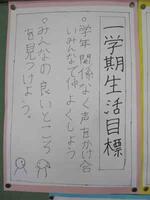 一学期生活目標
一。学年関係なく声をかけ合
いみんなで仲よくしよう
。みんなの良いところ
を見つけよう。